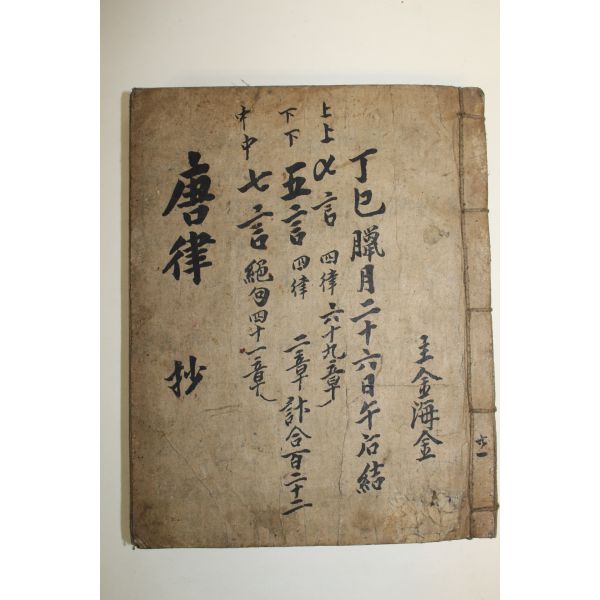 主金海金
丁巳臘月二十六日午后結
上上 七言 四律 六十九章
下下 五言 四律 二章 計合百二十二
中中 七言 絕句四十一章
唐律 抄